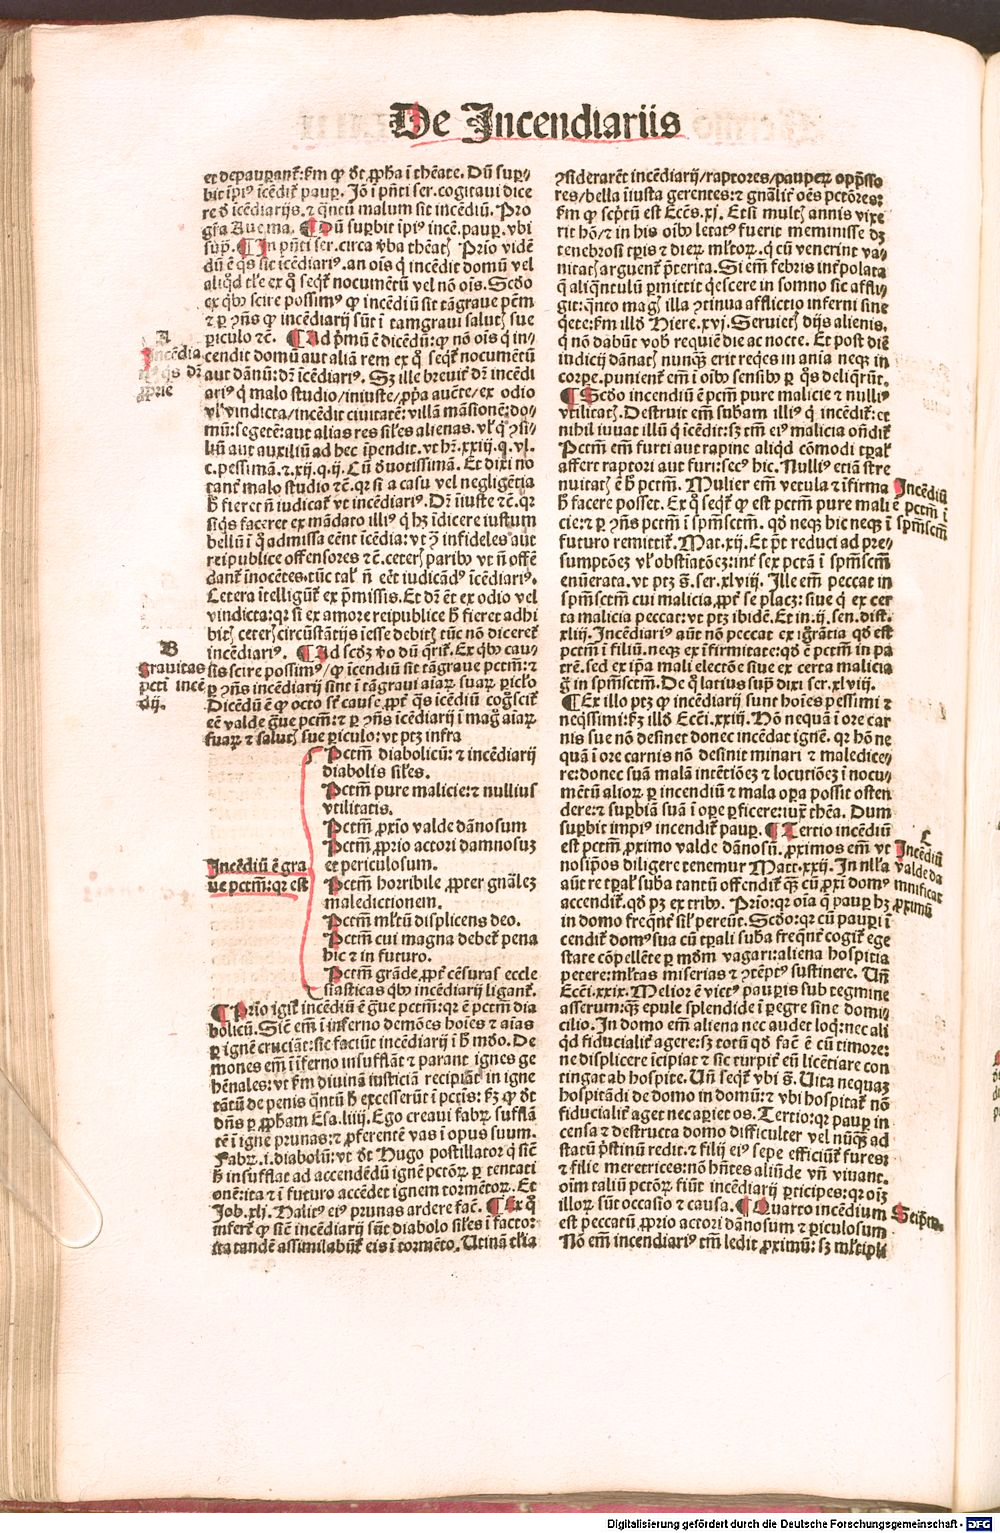 De Incendiariis
et depauperant: fm ꝙ dt ꝓpha ī theate. Dū sup-
bit īpiꝰ īcēdit̄ paup. Jō ī pn̄ti ser. cogitaui dice
re ō īcēdiarijs. ⁊ qn̄tū malum sit incēdiū. Pro
gr̄a Aue ma. ¶ Dū supbit ipiꝰ incē. paup. vbi
sup̄. ¶ In pn̄ti ser. circa v̄ba theat̄ Prīo vidē
dū ē qs sit icēdiariꝰ. an oīs q̄ incēdit domū vel
aliq̄d tl̄e ex q̄ seqt̄ nocumētū vel nō oīs. Scd̄o
ex qbꝰ scire possimꝰ ꝙ incēdiū sit tāgraue pctm̄
⁊ ꝑ ꝯn̄s ꝙ incēdiarij sūt ī tamgraui salut̄ sue
ꝑiculo ⁊c̄. ¶ Ad p̄mū ē dicēdū: ꝙ nō oīs q̄ in-
cendit domū aut aliā rem ex q̄ seqt̄ nocumētū
aut dānū: dr̄ īcēdiariꝰ. Sꝫ ille breuit̄ dr̄ incēdi
ariꝰ q̄ malo studio/iniuste/ꝓpa auctē/ex odio
vl̓ vindicta/incēdit ciuitatē: villā māsionē: do-
mū: segetē: aut alias res siles alienas. vl̓ q̄ ꝯsi-
liū aut auxiliū ad hec īpendit. vt hr̄. xxiij. q. vl̓.
c. pessimā. ⁊. xij. q. ij. Cū deuotissimā. Et dixi no
tant̄ malo studio ⁊c̄. qr si a casu vel negligētia
h̄ fieret n̄ iudicat̄ vt incēdiariꝰ. Dr̄ īiuste ⁊c̄. qr
siqs faceret ex mādato illiꝰ q̄ hꝫ īdicere iustum
bellū ī q̄ admissa eēnt īcēdia: vt ꝯ̄ infideles aut
reipublice offensores ⁊c̄. ceter̄ paribꝰ vt n̄ offē
dant̄ īnocētes. tūc tal̓ n̄ eēt iudicādꝰ īcēdiariꝰ.
Cetera ītelligūt̄ ex p̄missis. Et dr̄ ēt ex odio vel
vindicta: qr si ex amore reipublice h̄ fieret adhi
bit̄ ceter̄ circūstātijs iesse debit̄ tūc nō diceret̄
incēdiariꝰ. ¶ Ad scdꝫ v̄o dū qrit̄. Ex qbꝰ cau-
sis scire possimꝰ/ꝙ īcendiū sit tāgraue pctm̄: ⁊
ꝑ ꝯn̄s incēdiarij sint ī tāgraui aiaꝝ suaꝝ ꝑiclo
Dicēdū ē ꝙ octo st̄ cause ꝓpt̄ qs īcēdiū cogscit̄
eē valde ḡue pctm̄: ⁊ ꝑ ꝯn̄s īcēdiarij ī maḡ aiaꝝ
suaꝝ ⁊ salut̄ sue ꝑiculo: vt ptꝫ infra
A
Incēdia
riꝰ qs dr̄
ꝓprie
B
Grauitas
pcti incē
dij.
Incēdiū ē gra
ue pctm̄: qr est
Pctm̄ diabolicū: ⁊ incēdiarij
diabolis siles.
Pctm̄ pure malicie: ⁊ nullius
vtilitatis.
Pctm̄ ꝓxīo valde dānosum
Pctm̄ ꝓprio actori damnosuꝫ
et periculosum.
Pctm̄ horribile ꝓpter gnāleꝫ
maledictionem.
Pctm̄ ml̄tū displicens deo.
Pctm̄ cui magna debet̄ pena
hic ⁊ in futuro.
Pctm̄ grāde ꝓpt̄ cēsuras eccle
siasticas qbꝰ incēdiarij ligant̄.
¶ Prīo igit̄ incēdiū ē ḡue pctm̄: qr ē pctm̄ dia
bolicū. Sic̄ em̄ ī inferno demōes hoīes ⁊ aīas
ꝑ ignē cruciāt: sic faciūt incēdiarij ī h̄ mōo. De
mones em̄ ī īferno insufflāt ⁊ parant ignes ge
hēnales: vt fm̄ diuinā iusticiā recipiāt in igne
tātū de penis qn̄tū h̄ excesserūt ī pctis: fꝫ ꝙ dt
dn̄s ꝑ ꝓpham Esa. liiij. Ego creaui fabꝝ sufflā
tē ī ignē prunas: ⁊ ꝓferentē vas ī opus suum.
Fabꝝ. i. diabolū: vt dt Hugo postillator q̄ sic̄
h̄ insufflat ad accendēdū ignē pctōꝝ ꝑ tentati
onē: ita ⁊ ī futuro accēdet ignem tormētoꝝ. Et
Job. xli. Halitꝰ eiꝰ prunas ardere fac̄. ¶ Ex q̄
infert̄ ꝙ sic̄ incēdiarij sūt diabolo siles ī factor
ita tandē assimilabūt̄ eis ī tormēto. Utinā tl̄ia
ꝯsiderarēt incēdiarij/raptores/paupeꝝ opp̄sso
res/bella īiusta gerentes: ⁊ gn̄alit̄ oēs pctōres:
fm̄ ꝙ scptū est Eccs̄. xj. Etsi mult̄ annis vixe
rit hō/⁊ in his oībꝰ letatꝰ fuerit meminisse dꝫ
tenebrosi tp̄is ⁊ dieꝝ ml̄toꝝ. q̄ cū venerint va-
nitat̄ arguent̄ p̄terita. Si em̄ febris int̄polata
q̄ aliqn̄tulū ꝑmittit qescere in somno sic affli-
git: qn̄to maḡ illa ꝯtinua afflictio inferni sine
qete: fm̄ illd̄ Hiere. xvj. Seruiet̄ dijs alienis.
q̄ nō dabūt vob̄ requiē die ac nocte. Et post diē
iudicij dānat̄ nunqꝫ erit reqes in aīa neqꝫ in
corpe. punient̄ em̄ ī oībꝰ sensibꝰ ꝑ qs deliq̄rūt.
¶ Scd̄o incendiū ē pctm̄ pure malicie ⁊ nulliꝰ
vtilitat̄. Destruit em̄ subam illiꝰ q̄ incēdit̄: et
nihil iuuat illū q̄ īcēdit: sꝫ tm̄ eiꝰ malicia on̄dit̄
Pctm̄ em̄ furti aut rapine aliqd̄ cōmodi tp̄al̓
affert raptori aut furi: secꝰ hic. Nulliꝰ etiā stre
nuitat̄ ē h̄ pctm̄. Mulier em̄ vetula ⁊ īfirma
h̄ facere posset. Ex q̄ seqt̄ ꝙ est pctm̄ pure mali
cie: ⁊ ꝑ ꝯn̄s pctm̄ ī spm̄sctm̄. qd̄ neqꝫ hic neqꝫ ī
futuro remittit̄. Mat. xij. Et pt̄ reduci ad pre-
sumptōeꝫ vl̓ obstīatōeꝫ: int̄ sex pctā ī spm̄sctm̄
enūerata. vt ptꝫ s̄. ser. xlviij. Ille em̄ peccat in
spm̄sctm̄ cui malicia ꝓpt̄ se placꝫ: siue q̄ ex cer
ta malicia peccat: vt ptꝫ ibidē. Et in. ij. sen. dist.
xliij. Incēdiariꝰ aūt nō peccat ex igr̄antia qd̄ est
pctm̄ ī filiū. neqꝫ ex īfirmitate: qd̄ ē pctm̄ in pa
trē. sed ex īpa mali electōe siue ex certa malicia
ḡ in spm̄sctm̄. De q̄ latius sup̄ dixi ser. xlviij.
¶ Ex illo ptꝫ ꝙ incēdiarij sunt hoīes pessimi ⁊
neqssimi: fꝫ illd̄ Eccī. xxiij. Hō nequā ī ore car
nis sue nō desinet donec incēdat ignē. qr hō ne
quā ī ore carnis nō desinit minari ⁊ maledice-
re: donec suā malā incētiōeꝫ ⁊ locutiōeꝫ ī nocu-
mētū alioꝝ ꝑ incendiū ⁊ mala oꝑa possit osten
dere: ⁊ supbiā suā ī oꝑe ꝑficere: iux̄ thēa. Dum
supbit impiꝰ incendit̄ paup. ¶ Tertio incēdiū
est pctm̄ ꝓximo valde dānosū. ꝓximos em̄ vt
nosip̄os diligere tenemur Matt. xxij. In nl̄la
aūt re tp̄al̓ suba tantū offendit̄ qꝫ cū ꝓxi domꝰ
accendit̄. qd̄ pꝫ ex tribꝰ. Prīo: qr oīa q̄ paup hꝫ
in domo freqn̄t sil̓ pereūt. Scd̄o: qr cū pauꝑi ī
cendit̄ domꝰ sua cū tp̄ali suba freqn̄t cogit̄ ege
state cōpellēte ꝑ mōm vagari: aliena hospitia
petere: ml̄tas miserias ⁊ ꝯtēptꝰ sustinere. Un̄
Eccī. xxix. Melior ē victꝰ pauꝑis sub tegmine
asserum: qꝫ epule splendide ī ꝑegre sine domi-
cilio. In domo em̄ aliena nec audet loq̄: nec ali
qd̄ fiducialit̄ agere: sꝫ totū qd̄ fac̄ ē cū timore:
ne displicere īcipiat ⁊ sic turpit̄ eū licētiare con
tingat ab hospite. Un̄ seqt̄ vbi s̄. Uita nequaꝫ
hospitādi de domo in domū: ⁊ vbi hospitat̄ nō
fiducialit̄ aget nec apiet os. Tertio: qr paup in
censa ⁊ destructa domo difficulter vel nūqꝫ ad
statū p̄stinū redit. ⁊ filij eiꝰ sepe efficiūt̄ fures:
⁊ filie meretrices: nō hn̄tes aliūde vn̄ viuant.
oīm taliū pctōꝝ fiūt incēdiarij ꝑticipes: qr oīꝫ
illoꝝ sūt occasio ⁊ causa. ¶ Quarto incēdium
est peccatū ꝓprio actori dānosum ⁊ ꝑiculosum
Nō em̄ incendiariꝰ tm̄ ledit ꝓximū: sꝫ ml̄tipli
Incēdiū
ē pctm̄ ī
spm̄sctm̄
C
Incēdiū
valde da
mnificat
ꝓximū